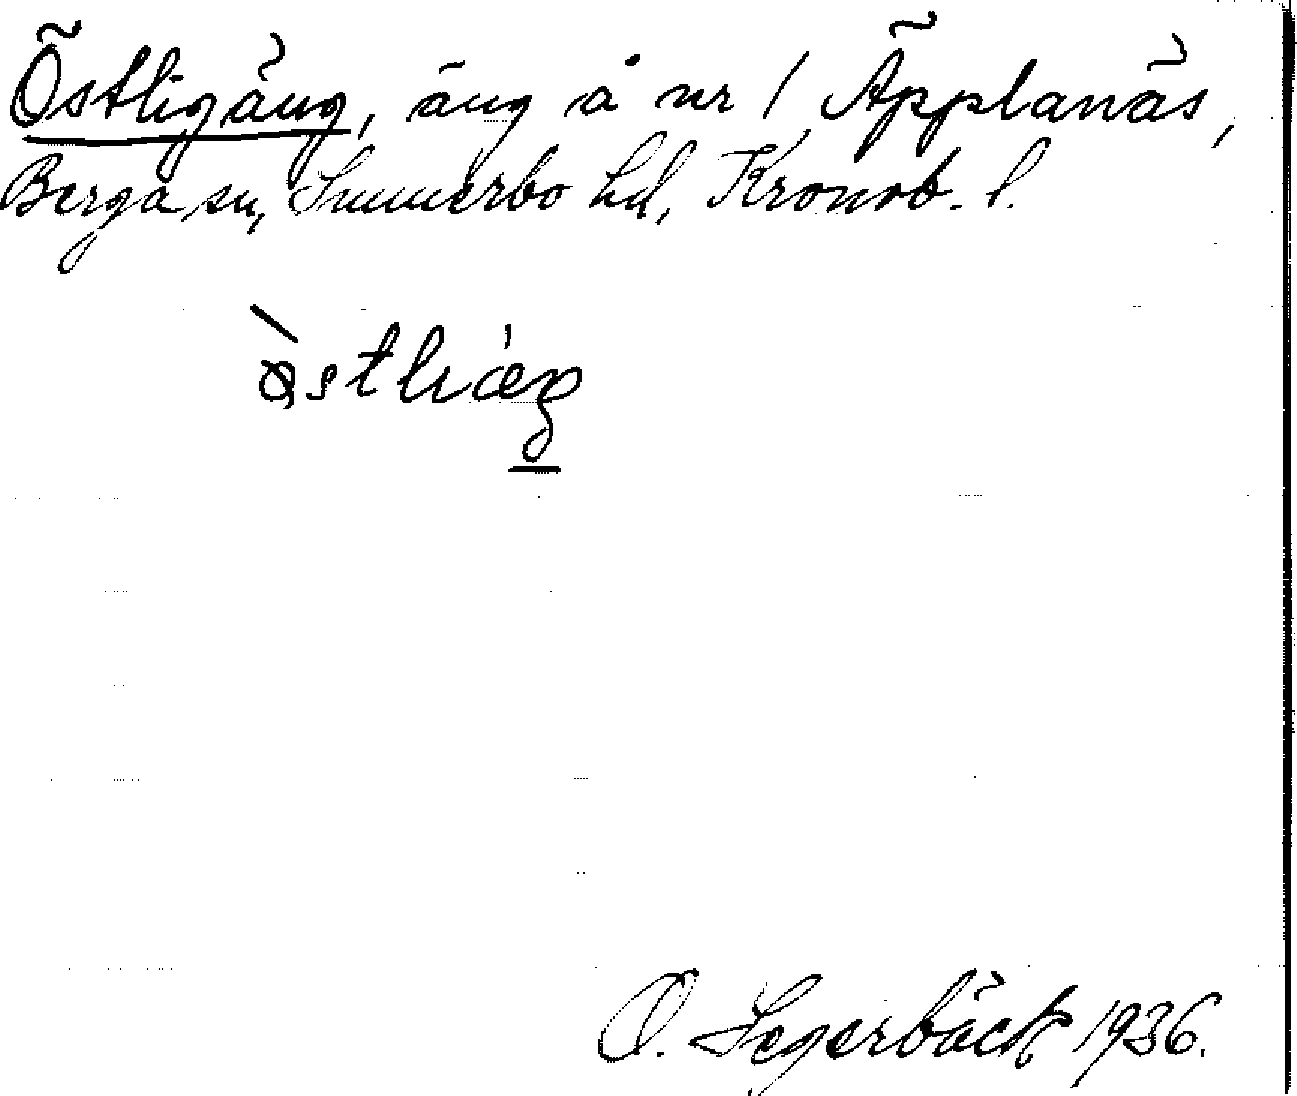 Östligäng, äng å nr 1 Äpplanäs,
Berga sn, Sunnerbo hd, Kronob. l.
O. Segerbäck 1936.